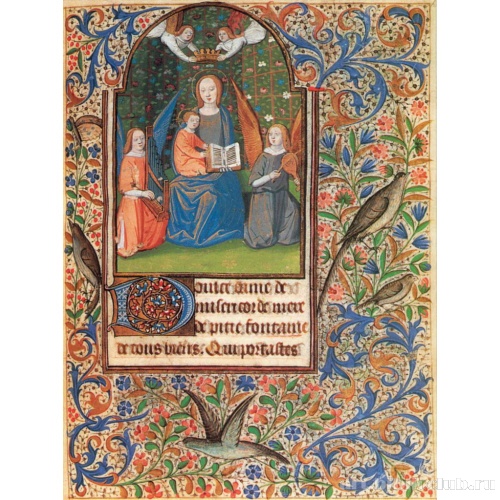 Doulce dame de
misericorde mere
de pitie, fontaine
de tous biens. Qui portastes